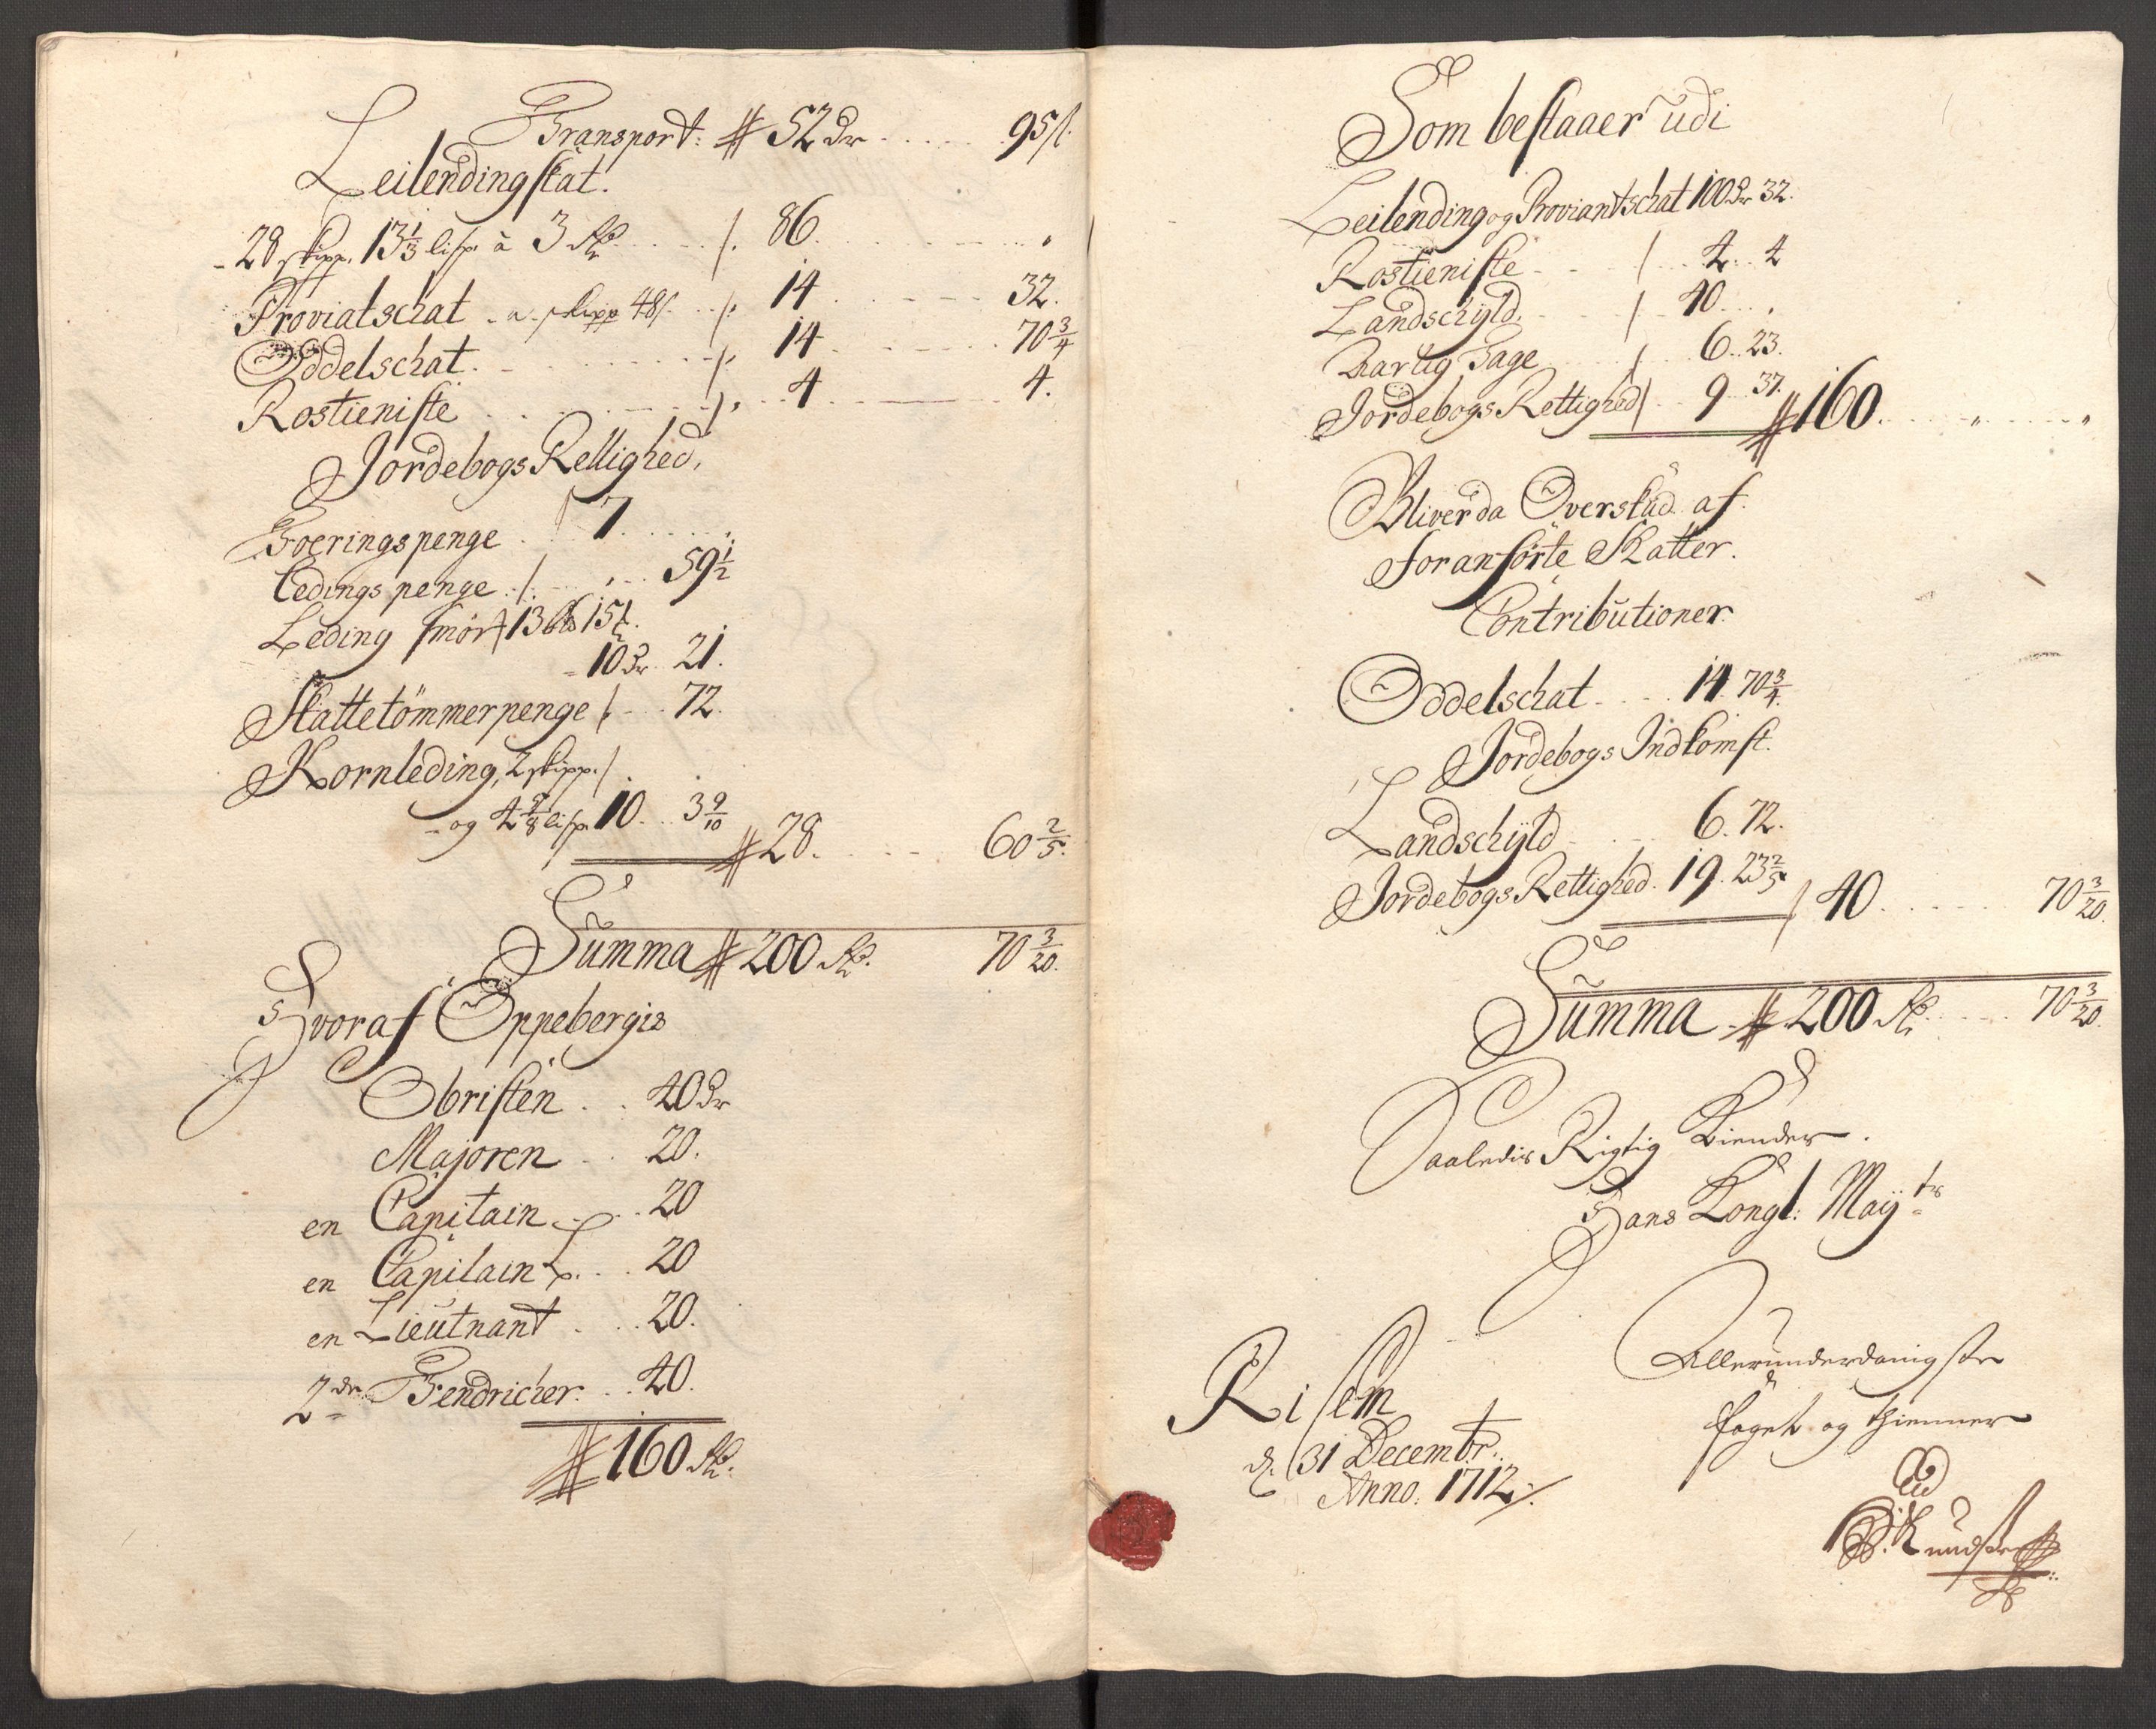 Transport: 52 dr 95 s.
Leilendingskat.
28 skipp. 13 1/3 lisp. à 3 Rd. 86. ,
Proviatschat a skipp 48 s. 14 32.
Oddelschat. 14 70 3/4
Rostieniste 4 4.
Jordebogs Rettighed,
Foeringspenge 7 ,
Ledingspenge , 59 1/2
Leding smør 13
10 dr 21.
Skattetømmerpenge 72.
Kornleding, 2 skipp.
og 4 5/8 lisp. 10 3 9/10
28. 60 2/5.
Summa 200 Rd. 70 3/20.
Hvoraf Oppebergis
Obristen 40 dr
Majoren 20.
en Capitain 20
en Capitain L. 20
en Lieutnant 20.
2de Fendricher 40.
160 Rd.
Som bestaaer udi
Leilending og Proviantschat 100 dr 32.
Rostieniste 4 4
Landschyld. 40 ,
Aarlig Tage 6 23.
Jordebogs Rettighed 9 37. 160. , ,
Bliver da Overskud af
foranførte Skatter.
Contributioner.
Oddelschat 14 70 3/4.
Jordebogs Indkomst.
Landschyld 6. 72.
Jordebogs Rettighed. 19. 23 2/5 40 70 3/20.
Summa 200 Rd. 70 3/20.
Saaledis Rigtig Kiender.
Hans Kongl: Mayts
Allerunderdanigste
foget og thienner
Risem
d. 31 Decembr:
Anno. 1712